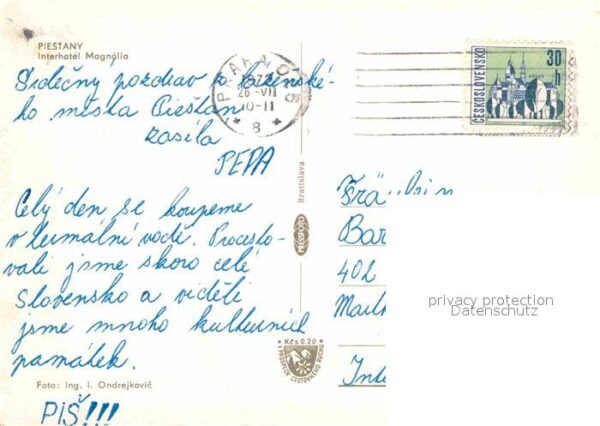 PIEŠŤANY
Interhotel Magnólia
Srdečný pozdrav z lázeňské-
ho města Piešťan
zasílá
PEPA
Celý den se koupeme
v termální vodě. Procesto-
vali jsme skoro celé
Slovensko a viděli
jsme mnoho kulturních
památek.
Foto: Ing. I. Ondrejkovič
PIŠ!!!
PRAHA
26.-VII
10-11
8
ČESKOSLOVENSKO
30
h
Bratislava
PRESSFOTO
Kčs 0.20
V PROSPĚCH CESTOVNÉHO RUCHU
Fräulein
Bar
402
privacy protection
Datenschutz